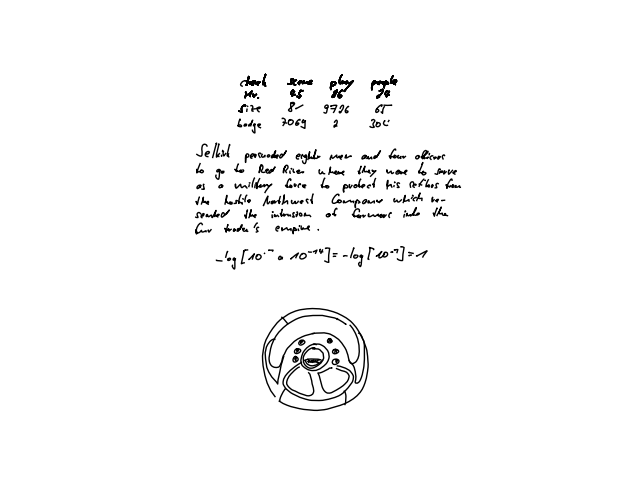 check score play people
Mr. 45 86 24
size 8 9726 65
badge 7069 2 30
Selkirk persuaded eighty men and four officers
to go to Red River where they were to serve
as a military force to protect his settlers from
the hostile Northwest Company which re-
sented the intrusion of farmers into the
fur trader's empire.
-log[10 10⁻¹⁴] = -log[10⁻¹] = 1